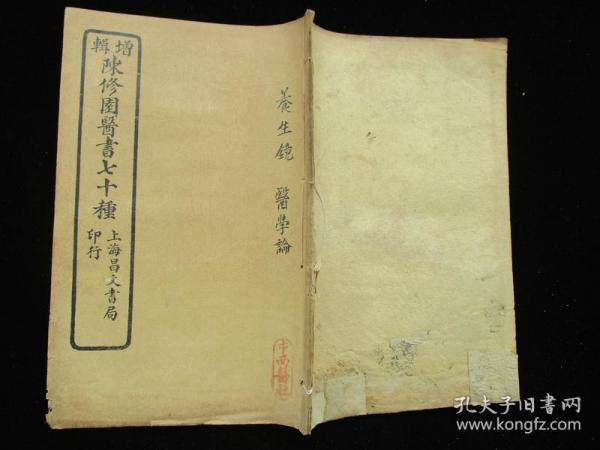 增輯
陳修園醫書七十種
上海昌文書局
印行
養生鏡 醫學論
孔夫子旧書网
www.kongfz.com